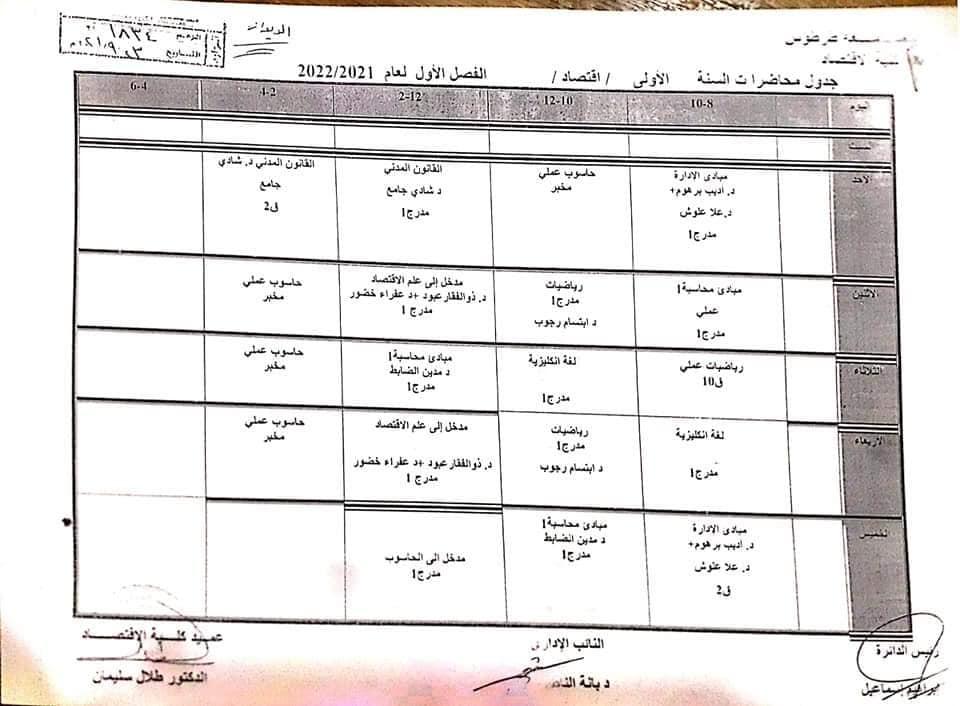 الديوان
الرقم ١٨٣٤
التاريخ
طرطوس
الاقتصاد
جدول محاضرات السنة الأولى / اقتصاد / الفصل الأول لعام 2022/2021
اليوم 8-10 10-12 12-2 2-4 4-6
السبت
الأحد
مبادئ الادارة
د. أديب برهوم+
د.علا علوش
مدرج1
حاسوب عملي
مخبر
القانون المدني
د شادي جامع
مدرج1
القانون المدني د. شادي
جامع
ق2
الاثنين
مبادئ محاسبة1
عملي
مدرج1
رياضيات
مدرج1
د ابتسام رجوب
مدخل إلى علم الاقتصاد
د. ذوالفقارعبود +د عفراء خضور
مدرج 1
حاسوب عملي
مخبر
الثلاثاء
رياضيات عملي
ق10
لغة انكليزية
مدرج1
مبادئ محاسبة1
د مدين الضابط
مدرج1
حاسوب عملي
مخبر
الاربعاء
لغة انكليزية
مدرج1
رياضيات
مدرج1
د ابتسام رجوب
مدخل إلى علم الاقتصاد
د. ذوالفقارعبود +د عفراء خضور
مدرج 1
حاسوب عملي
مخبر
الخميس
مبادئ الادارة
د. أديب برهوم+
د. علا علوش
ق2
مبادئ محاسبة1
د مدين الضابط
مدرج1
مدخل الى الحاسوب
مدرج1
رئيس الدائرة
ابراهيم اسماعيل
النائب الإداري
د بانة
عميد كلية الاقتصاد
الدكتور طلال سليمان